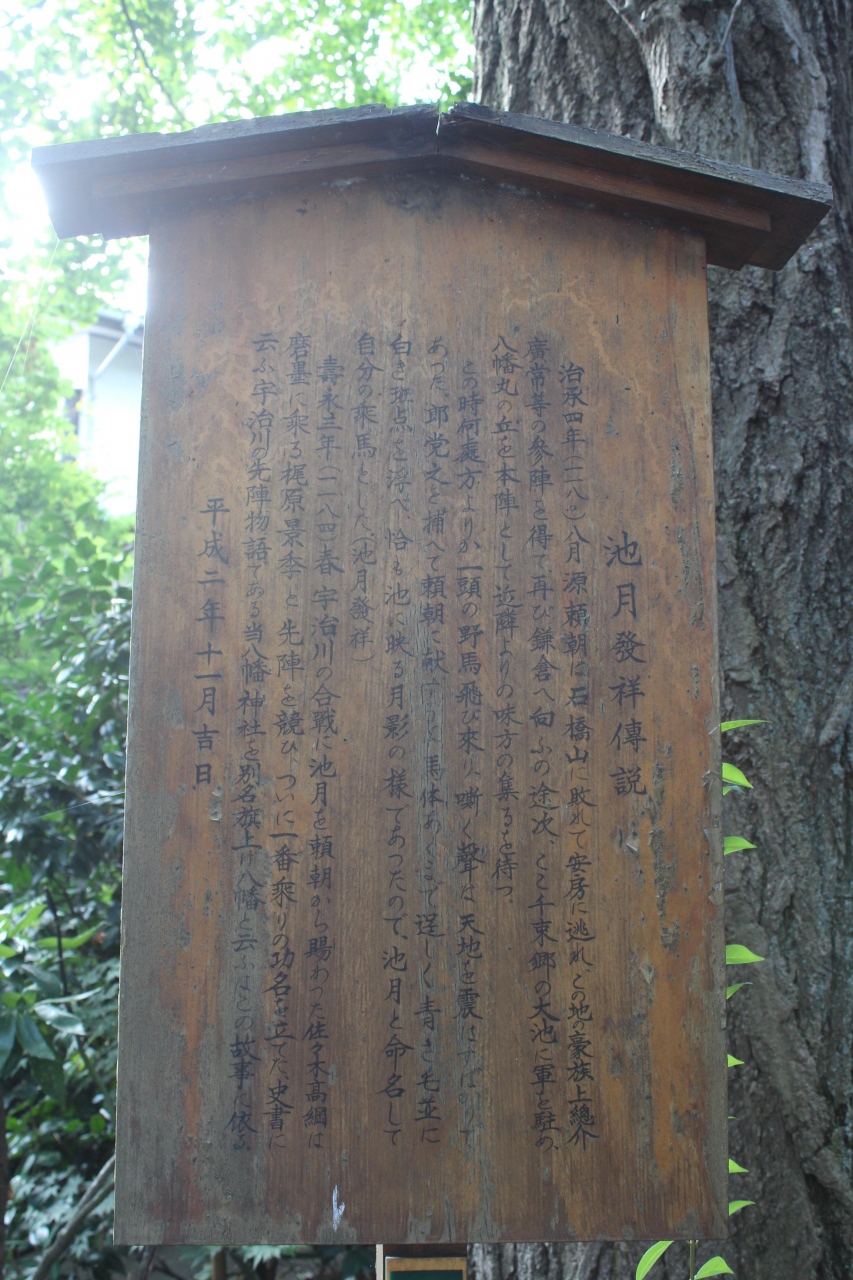 池月發祥傳説
治承四年(一一八〇)八月源頼朝は石橋山に敗れて安房に逃れ、この地の豪族上總介
廣常等の参陣を得て再び鎌倉へ向ふの途次、ここ千束郷の大池に軍を駐め、
八幡丸の丘を本陣として近隣よりの味方の集るを待つ。
この時何處方よりか一頭の野馬飛び來り、嘶く聲は天地を震はすばかりで
あった、郎党之を捕へて頼朝に献 馬体あくまで逞しく青き毛並に
白き斑点を浮べ、恰も池に映る月影の様であったので、池月と命名して
自分の乗馬とした(池月發祥)
壽永三年(一一八四)春宇治川の合戦に池月を頼朝から賜わった佐々木高綱は
磨墨に乗る梶原景季と先陣を競ひ、ついに一番乗りの功名を立てた、史書に
云ふ宇治川の先陣物語である当八幡神社を別名旗上げ八幡と云ふはこの故事に依る
平成二年十一月吉日